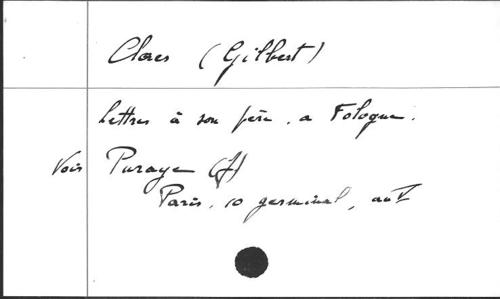 Closes (Gilbert)
Lettres à son père, a Fologne.
Voir Puraye (J)
Paris, 10 germinal, an V